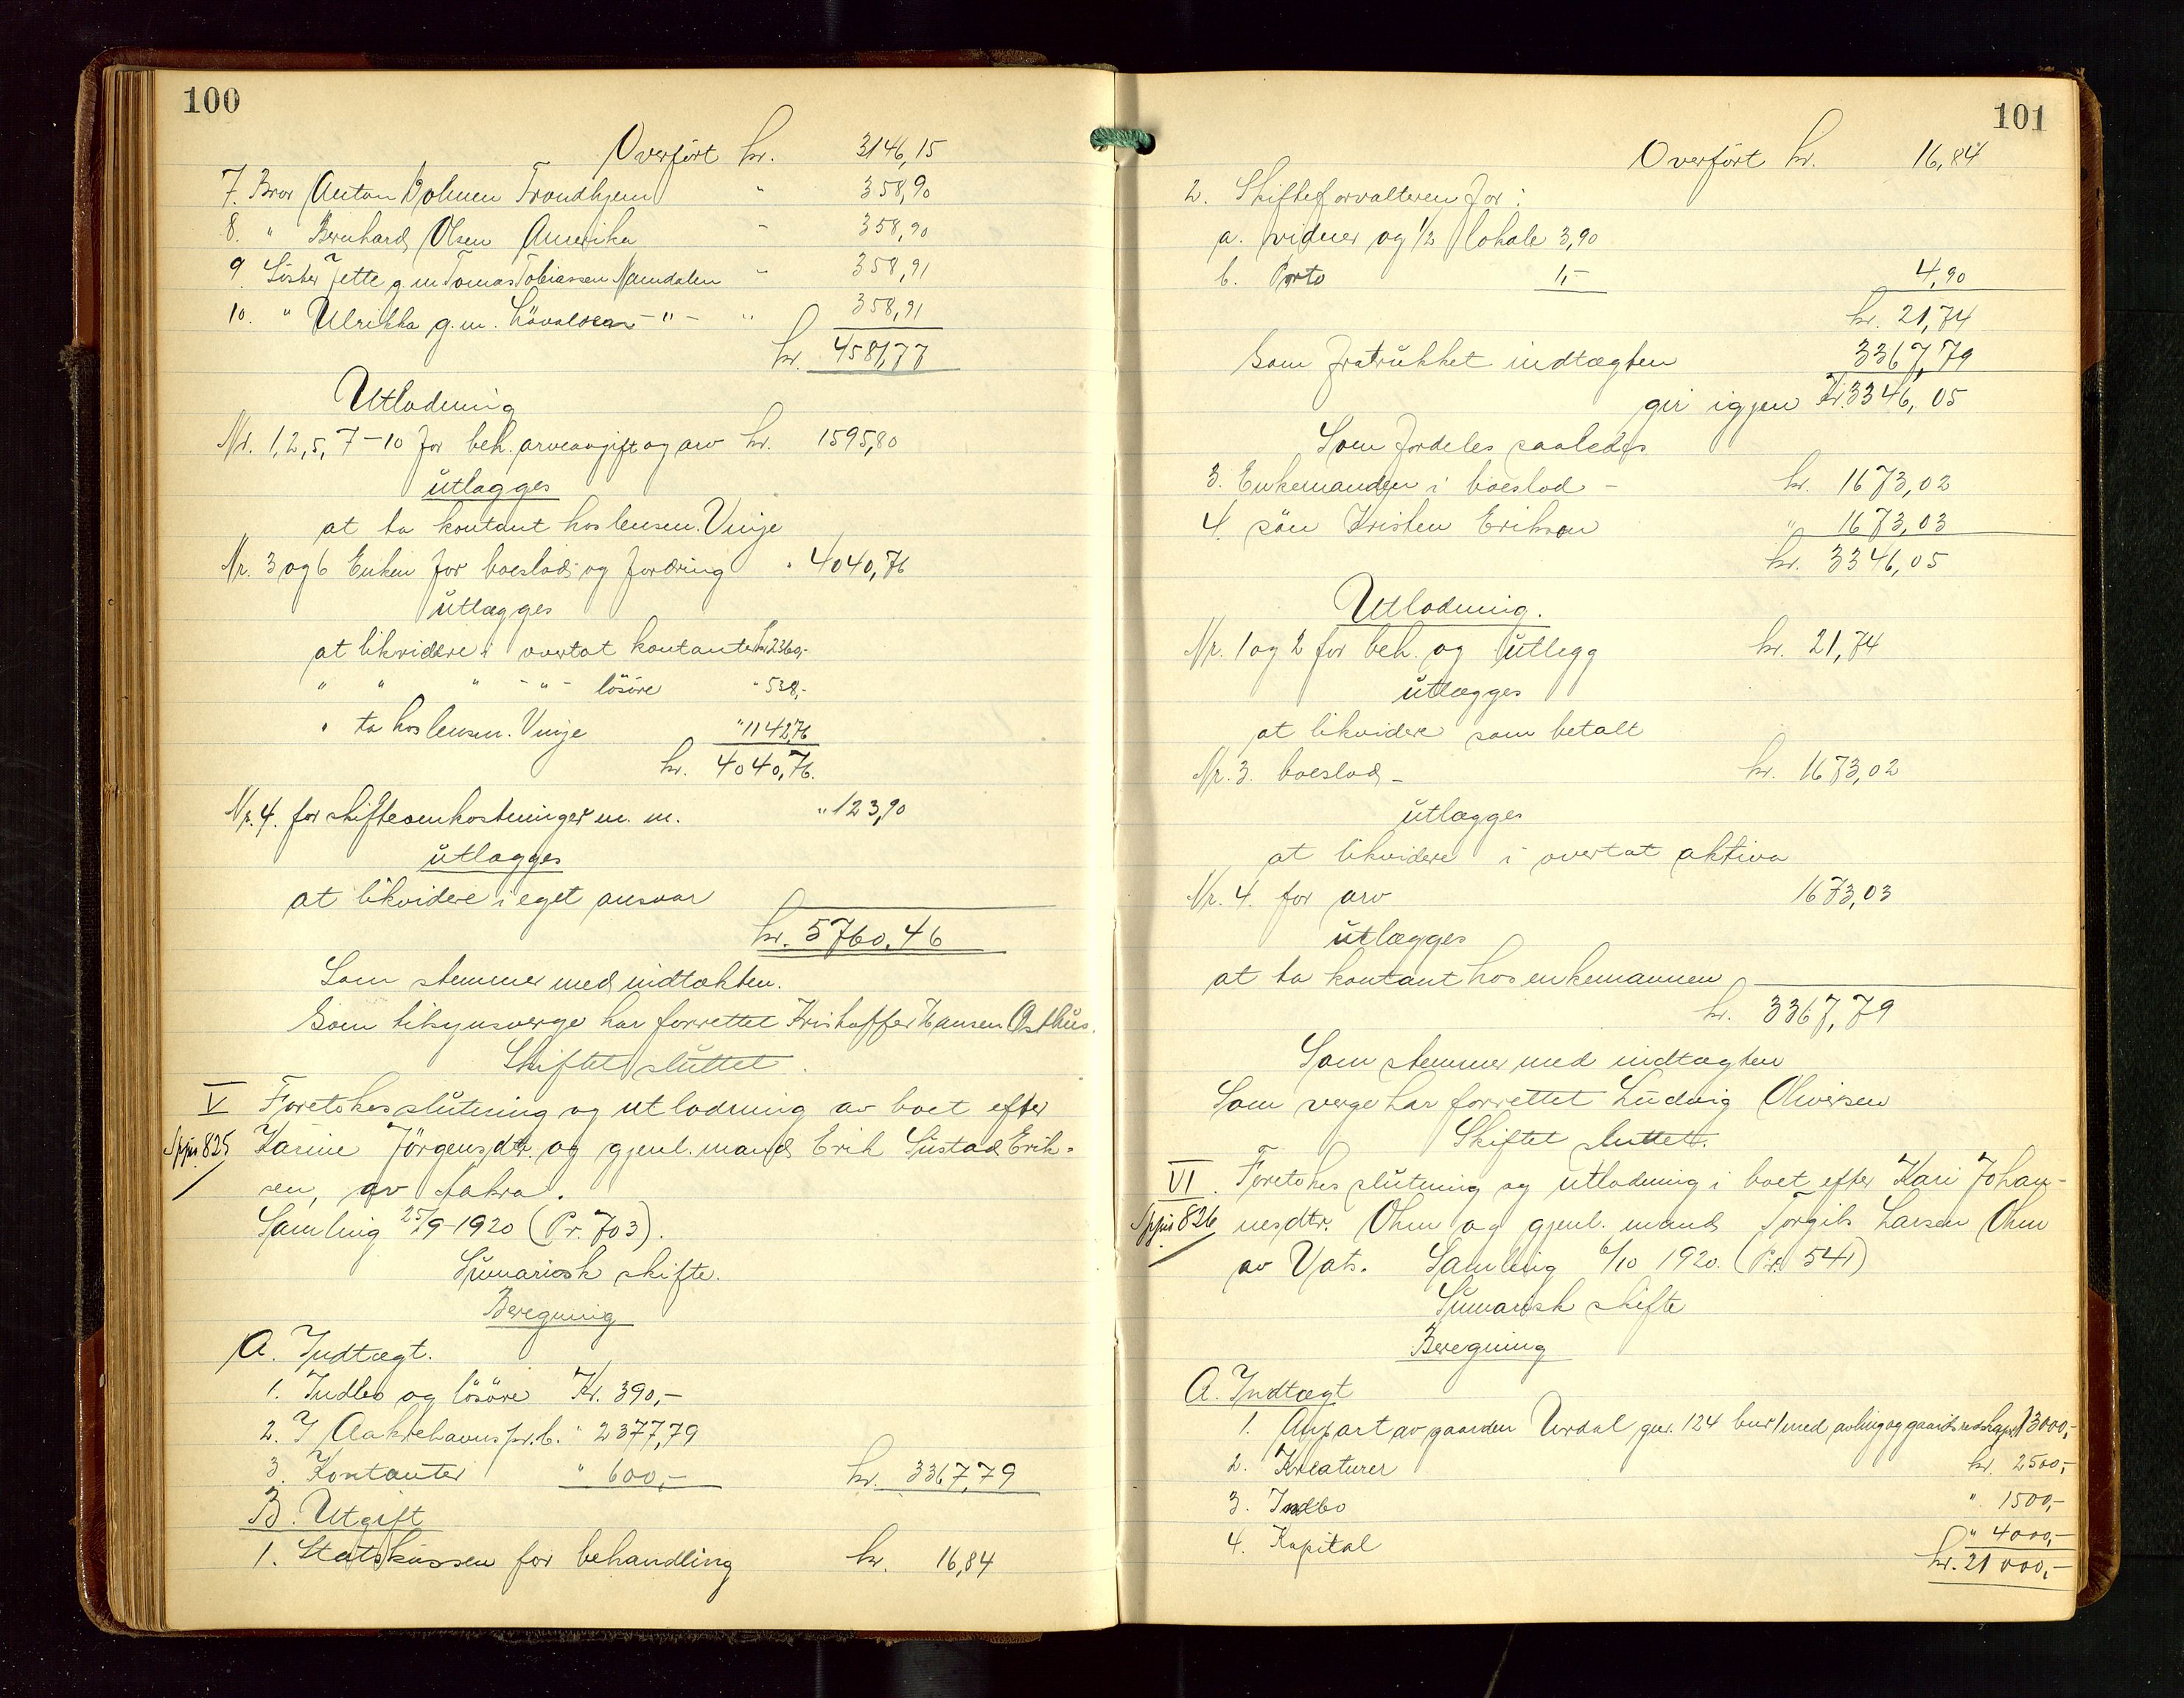 100
Overført kr. 3146,15
7. Bror Anton Dolmen Trondhjem " 358,90
8. " Bernhard Olsen Amerika - 358,90
9. Søster Jette g.m Tomas Tobiassen Namdalen " 358,91
10. " Ulrikka g.m. -"- " 358,91
kr. 4581,77
Utlodning
Nr. 1, 2, 5, 7-10 for beh. arveavgift og arv kr. 1595,80
utlægges
at ta kontant hos lensm. Vinje
Nr. 3 og 6 Enken for boeslod og fordring " 4040,76
utlægges
at likvidere i overtat kontanter kr 2360,-
" " " -"- løsøre " 538,-
" ta hos lensm. Vinje " 1142,76
kr. 4040,76.
Nr. 4. for skifteomkostninger m. m. " 123,90
utlægges
at likvidere i eget ansvar
kr. 5760,46
Som stemmer med indtækten.
Som tilsynsverge har forrettet Kristoffer Hansen Østhus.
Skiftet sluttet.
V Foretokes slutning og utlodning av boet efter
825 Karine Jörgensdtr. og gjenl. mand Erik Gustad Erik-
sen, av Aakra.
Samling 25/9-1920 (Pr. 703).
Sumarisk skifte.
Beregning
A. Indtægt.
1. Indbo og løsøre Kr. 390,-
2. I Aakrehavns spr.b. " 2377,79
3. Kontanter " 600,- kr. 3367,79
B. Utgift
1. Statskassen for behandling kr. 16,84
101
Overført kr. 16,84
2. Skifteforvalteren for:
a. vidner og 1/2 lokale 3,90
b. Porto 1,- 4,90
kr. 21,74
Som fratrukket indtægten 3367,79
gir igjen Kr. 3346,05
Som fordeles saaledes
3. Enkemanden i boeslod - kr. 1673,02
4. søn Kristen Erikson " 1673,03
kr. 3346,05
Utlodning.
Nr. 1 og 2 for beh. og utlegg kr. 21,74
utlægges
at likvidere som betalt
Nr. 3. boeslod - kr. 1673,02
utlægges
at likvidere i overtat aktiva
Nr. 4. for arv 1673,03
utlægges
at ta kontant hos enkemannen
kr. 3367,79
Som stemmer med indtægten
Som verge har forrettet Ludvig Oliversen
Skiftet sluttet.
VI. Foretokes slutning og utlodning i boet efter Kari Johan-
826 nesdtr. Ohm og gjenl. mand Torgils Larsen Ohm
av Vats. Samling 6/10 1920. (Pr. 541)
Sumarisk skifte
Beregning
A. Indtægt
1. Anpart av gaarden Urdal gnr. 124 bnr 1 med avling og gaardsredskaper 13000,-
2. Kreaturer kr. 2500,-
3. Indbo " 1500,-
4. Kapital " 4000,-
kr. 21000,-